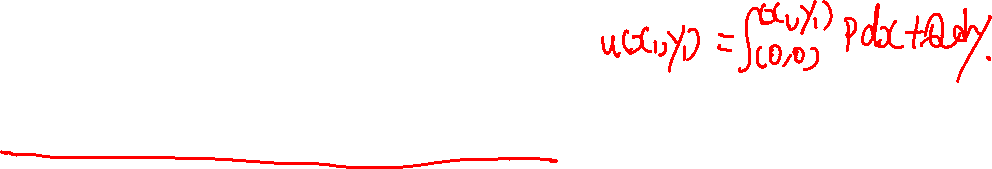 u(x₁,y₁) = ∫_{(0,0)}^{(x₁,y₁)} Pdx+Qdy.